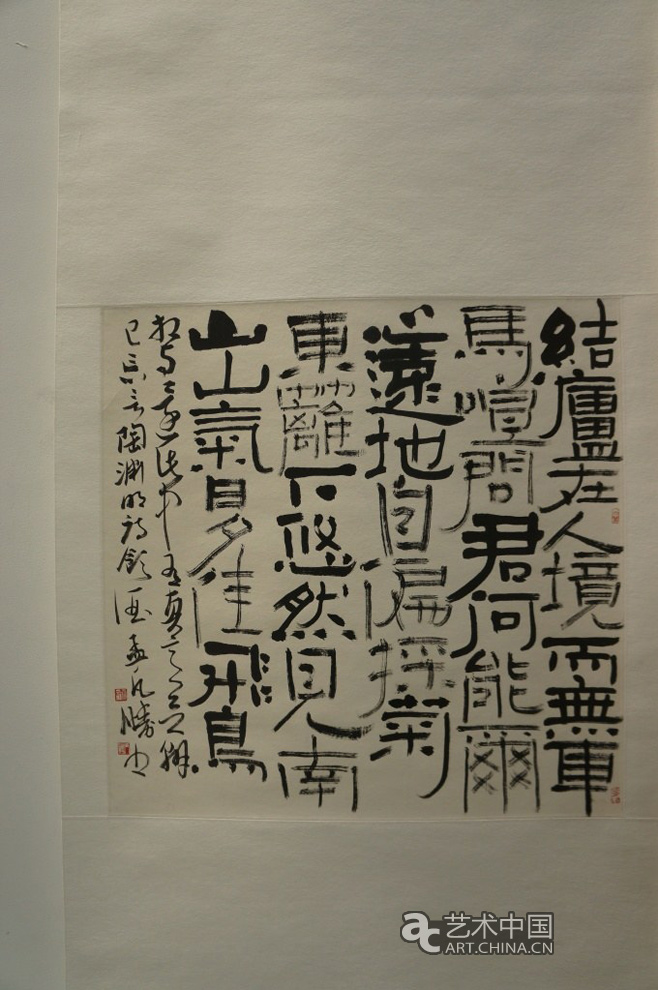 結廬在人境而無車
馬喧問君何能爾
心遠地自偏採菊
東籬下悠然見南
山山氣日夕佳飛鳥
相与還此中有真意欲辨
已忘言陶淵明詩飲酒孟凡勝书
艺术中国
ART.CHINA.CN